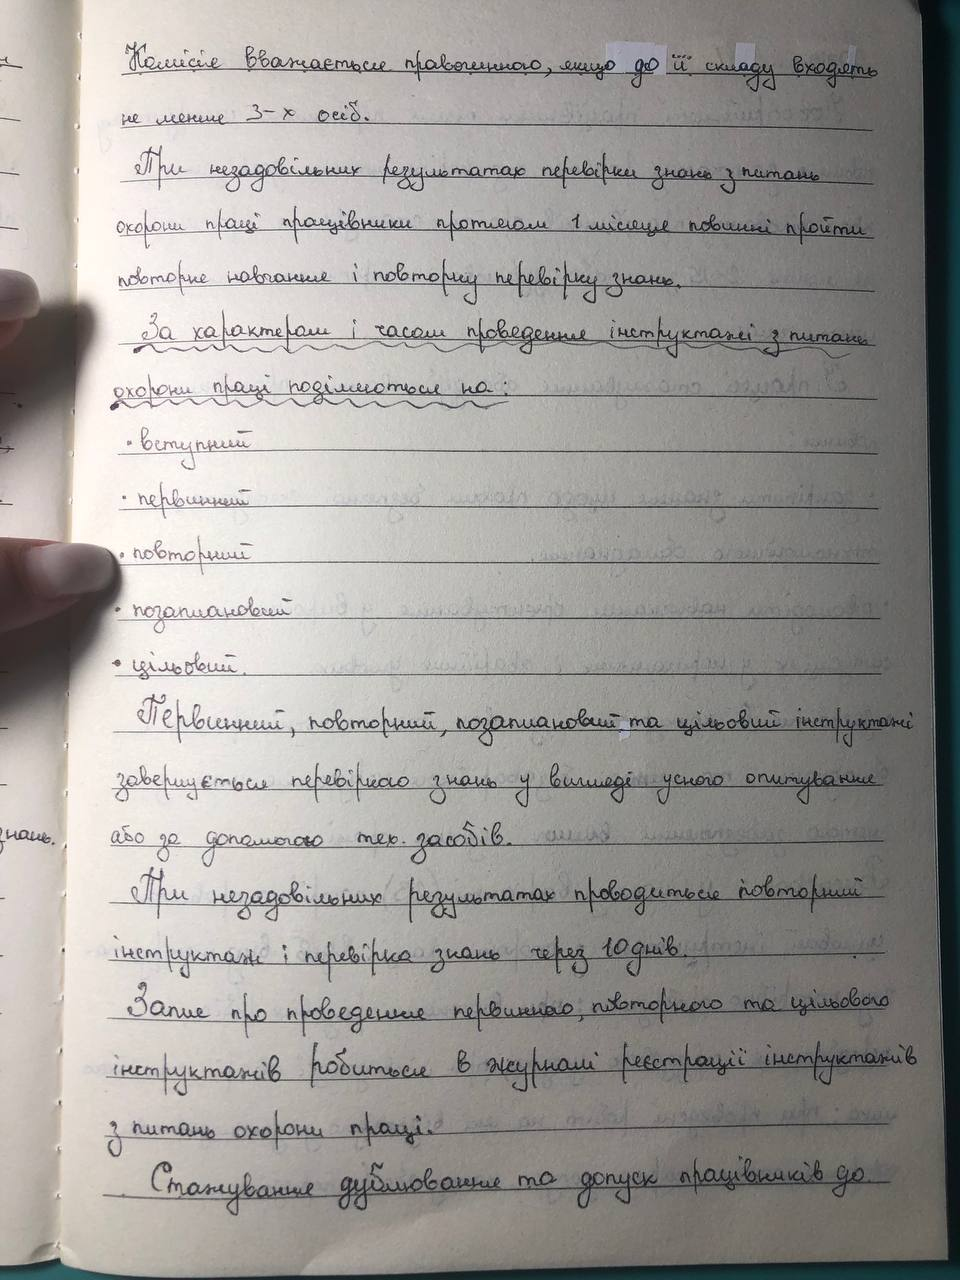 Комісія вважається правочинною, якщо до її складу входять
не менше 3-х осіб.
При незадовільних результатах перевірки знань з питань
охорони праці працівники протягом 1 місяця повинні пройти
повторне навчання і повторну перевірку знань.
За характером і часом проведення інструктажі з питань
охорони праці поділяються на:
• вступний
• первинний
• повторний
• позаплановий
• цільовий.
Первинний, повторний, позаплановий та цільовий інструктажі
завершується перевіркою знань у вигляді усного опитування
або за допомогою тех. засобів.
При незадовільних результатах проводиться повторний
інструктаж і перевірка знань через 10 днів.
Запис про проведення первинного, повторного та цільового
інструктажів робиться в журналі реєстрації інструктажів
з питань охорони праці.
Стажування дублювання та допуск працівників до
знань.